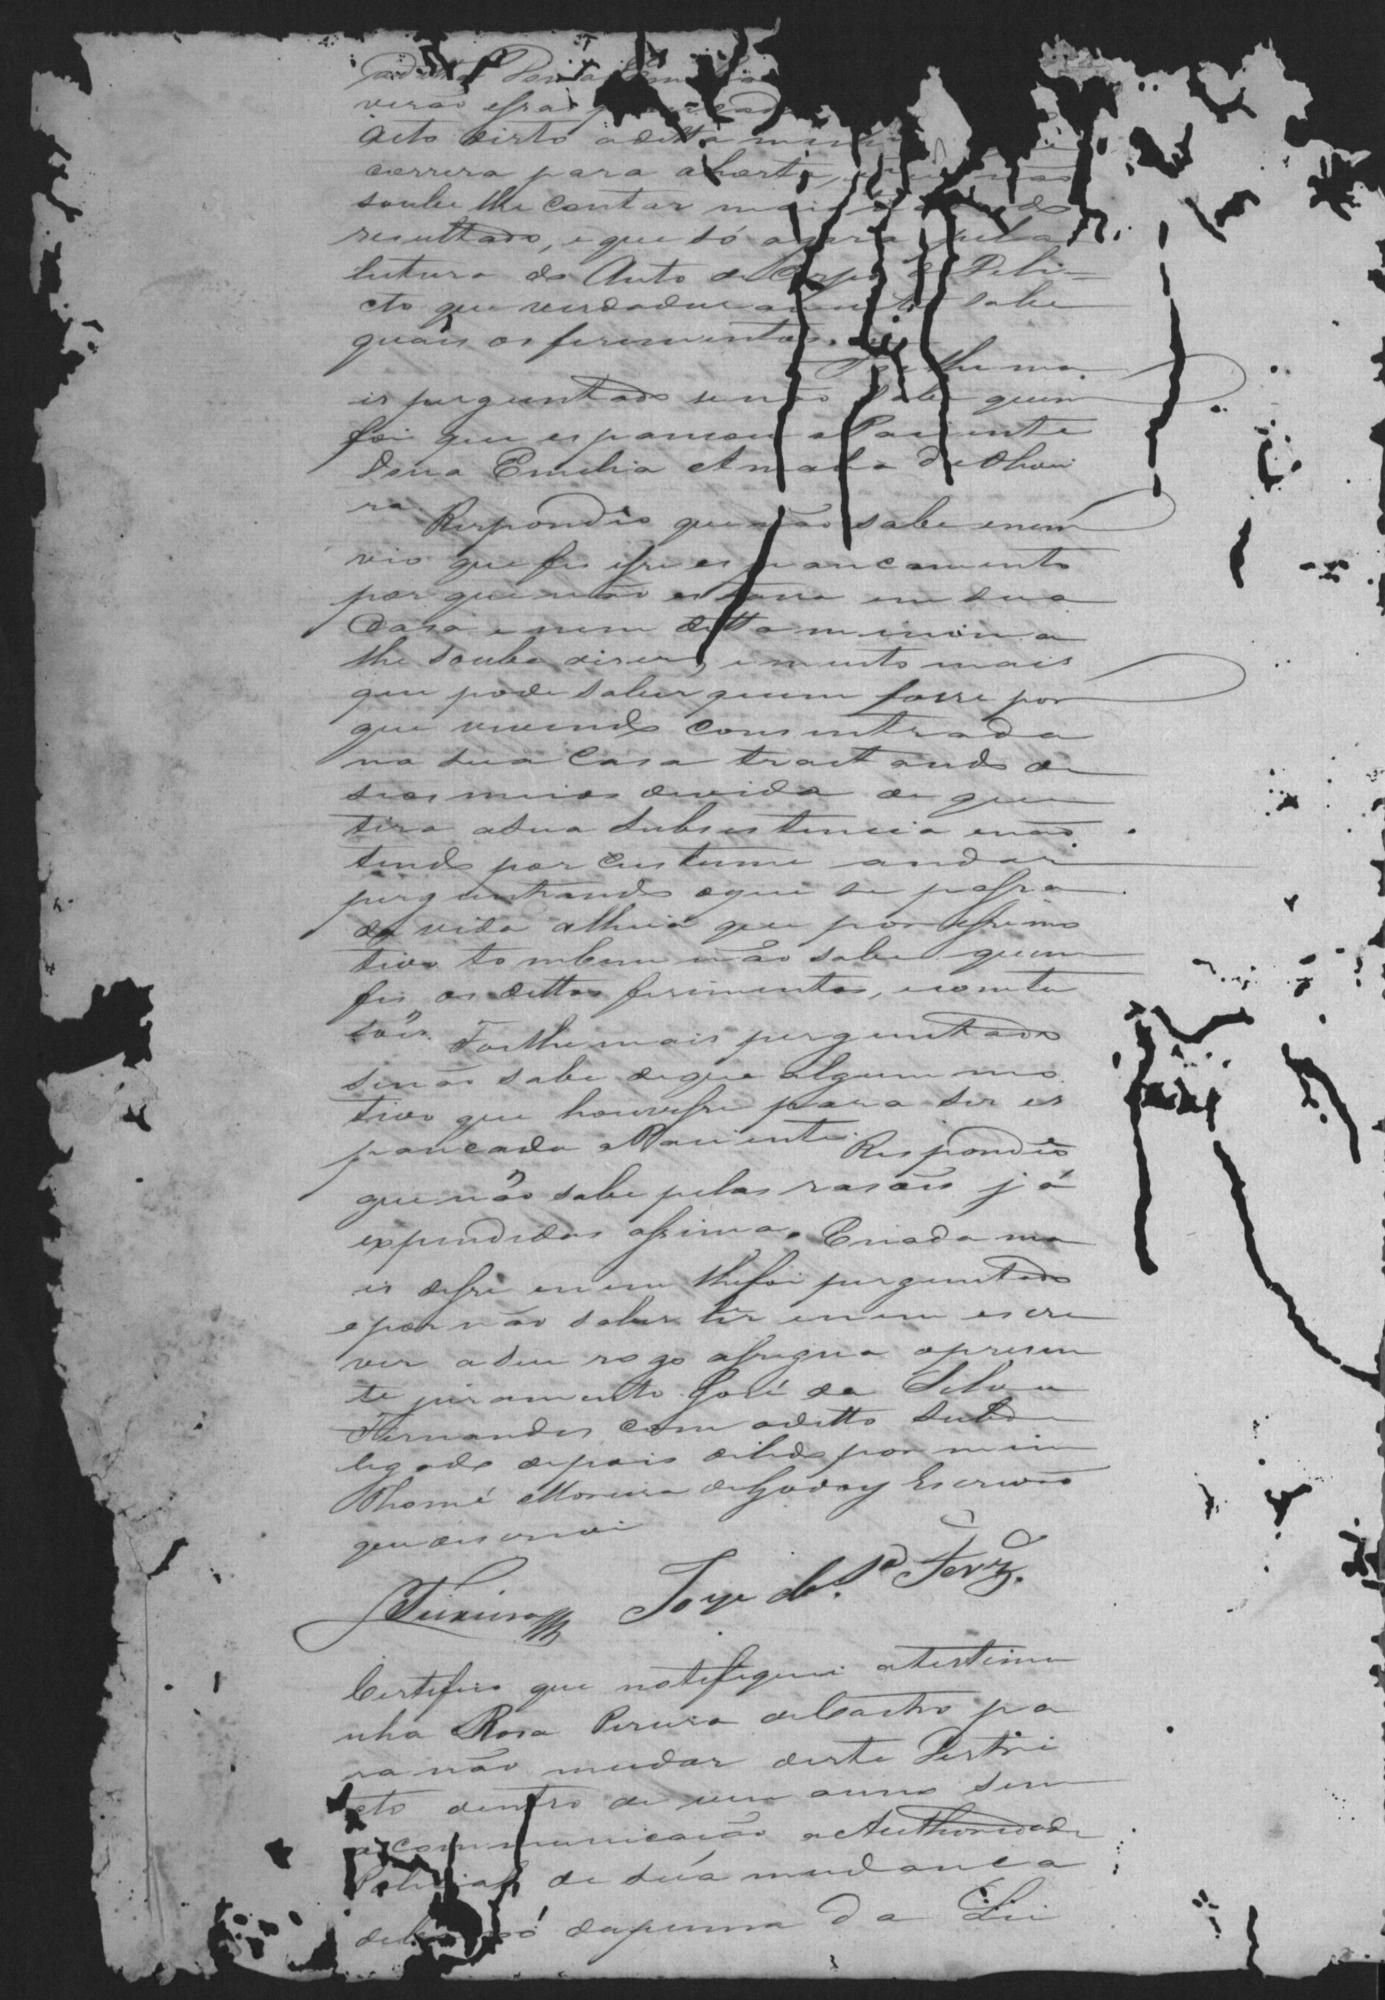 verão essas
acto visto a ditta
correra para a horta, não
soube lhe contar mais
resultado, e que só agora pela
leitura do Auto de Corpo de Deli=
cto que verdadeiramente sabe
quais os ferimentos.
Foi lhe ma
is perguntado se não sabe quem
foi que espancou a Paciente
Dona Emilia Amalia de Olivei
ra
Respondeo que não sabe e nem
vio que fes esse espancamento
por que não estava em sua
Casa e nem ditta menina
lhe soube diser, e muito mais
que pode saber quem fosse por
que vivendo consentrada
na sua Casa tractando de
seos meios de vida de que
tira a sua subsistencia e não
tendo por custume andar
perguntando o que se passa
da vida alheia que por esse mo
tivo tambem não sabe quem
fes os dittos ferimentos, e contu
sões. Foi lhe mais perguntado
se não sabe de que algum mo
tivo que houvesse para ser es
pancada a Paciente. Respondeo
que não sabe pelas rasões já
expendidas assima. E nada ma
is disse e nem lhe foi perguntado
e por não saber ler e nem escre
ver a seu rogo assigna o presen
te juramento José da Silva
Fernandes com o ditto Subde
legado depois de lido por mim
Thomé Moreira de Godoy Escrivão
que escrevi
Teixeira José da S.ª Ferz.
Certifico que notifiquei a testimu
nha Rosa Pereira de Castro pa
ra não mudar deste Destri
cto dentro de um anno sem
a communicação a Authoridade
Policial de súa mudança
debaixo da penna da Lei